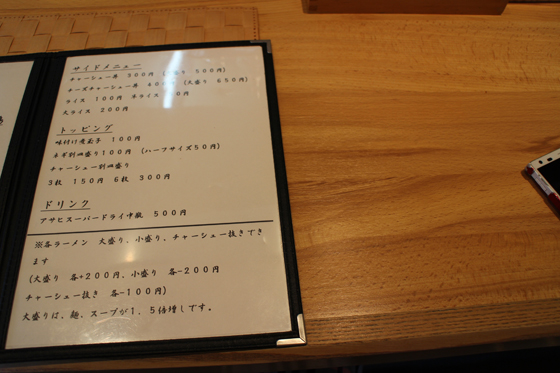 サイドメニュー
チャーシュー丼 300円 (大盛り 500円)
チーズチャーシュー丼 400円 (大盛り 650円)
ライス 100円 半ライス 50円
大ライス 200円
トッピング
味付け煮玉子 100円
ネギ別皿盛り100円 (ハーフサイズ50円)
チャーシュー別皿盛り
3枚 150円 6枚 300円
ドリンク
アサヒスーパードライ中瓶 500円
※各ラーメン 大盛り、小盛り、チャーシュー抜きでき
ます
(大盛り 各+200円、小盛り 各-200円
チャーシュー抜き 各-100円)
大盛りは、麺、スープが1.5倍増しです。